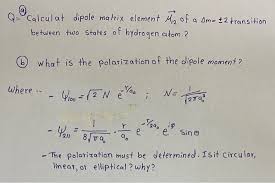 (a)
Q= Calculat dipole matrix element M⃗₁₂ of a Δm= ±2 transition
between two states of hydrogen atom?
(b) what is the polarization of the dipole moment?
where :- - Ψ₁₀₀ = √2 N e^(-r/a₀) ; N = 1/√(2πa₀)
- Ψ₂₁₁ = 1/(8√πa₀) · r/a₀ e^(-r/2a₀) e^(iφ) sinθ
- The polarization must be determined. Is it circular,
linear, or elliptical? why?